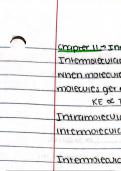 Chapter 11 → In
Intermolecular
when molecul
molecules get
KE ∝ T
Intramolecul
intermolecul
Intermolecul